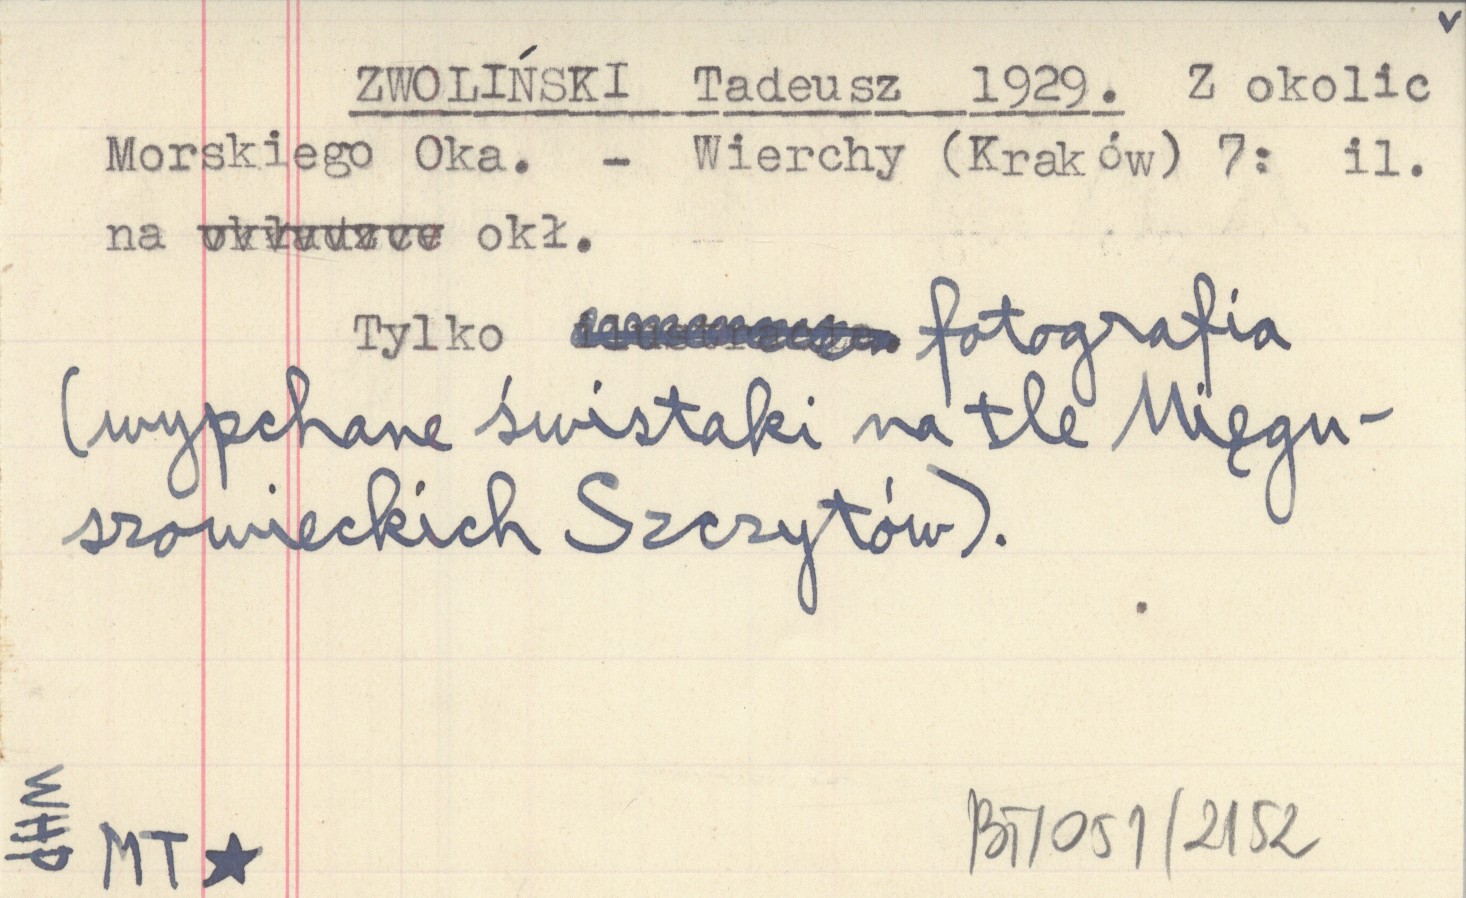 v
ZWOLIŃSKI Tadeusz 1929. Z okolic
Morskiego Oka. - Wierchy (Kraków) 7: il.
na okładzce okł.
Tylko ilustracja. fotografia
(wypchane świstaki na tle Mięgu-
szowieckich Szczytów).
WHP
MT ★
BT/051/2152